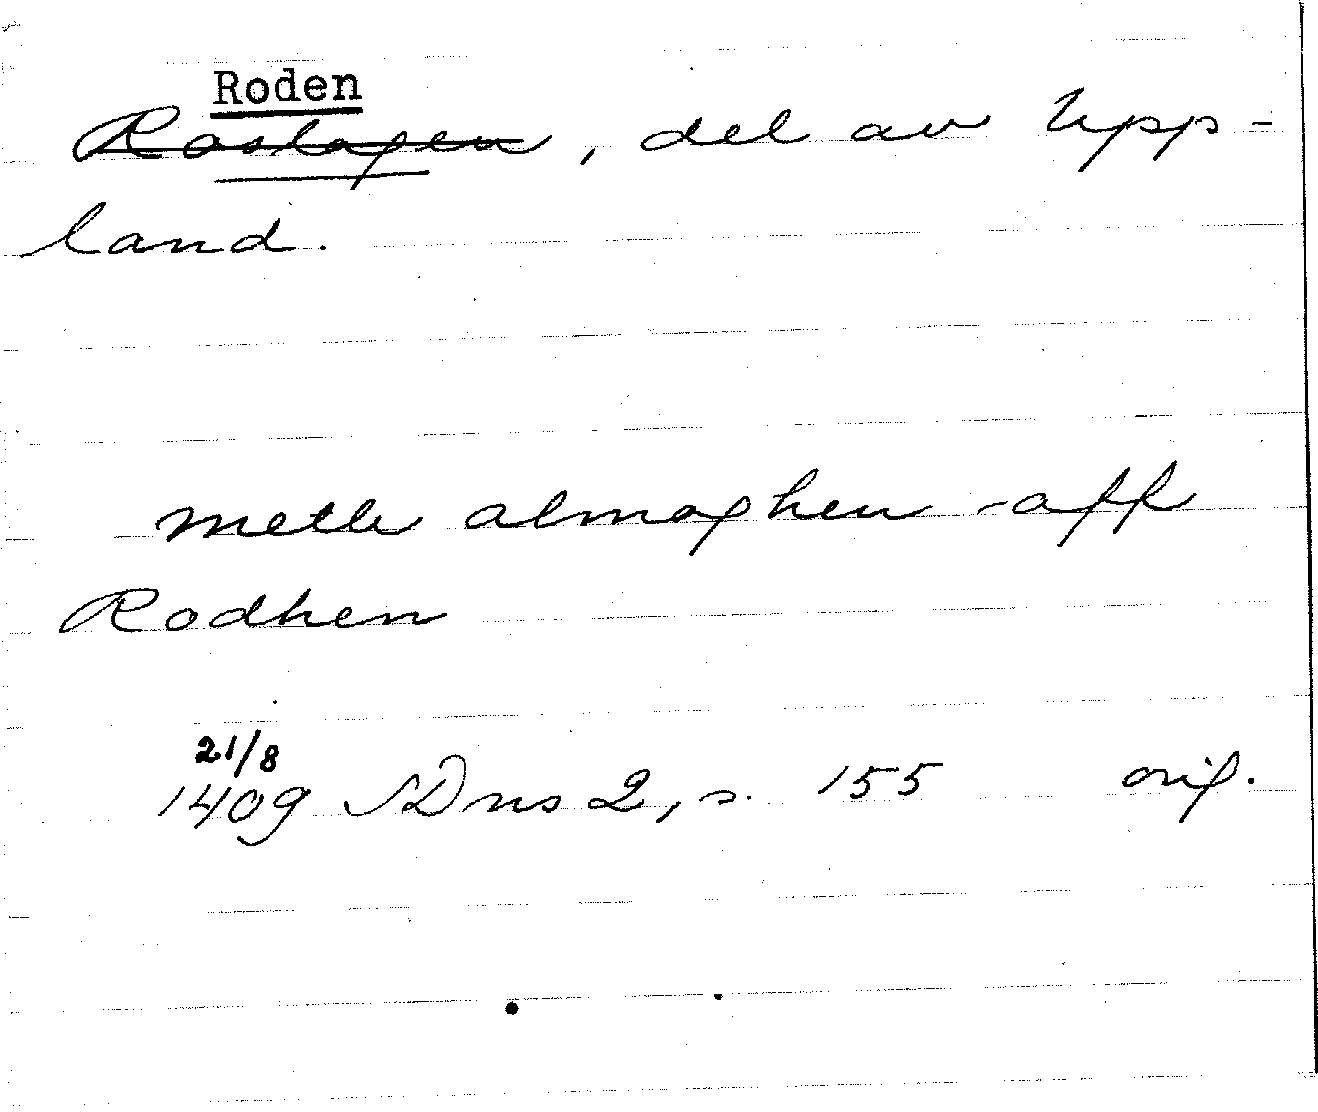 Roden
Roslagen, del av Upp-
land.
meth almoghen aff
Rodhen
21/8
1409 SD ns 2, s. 155 orig.